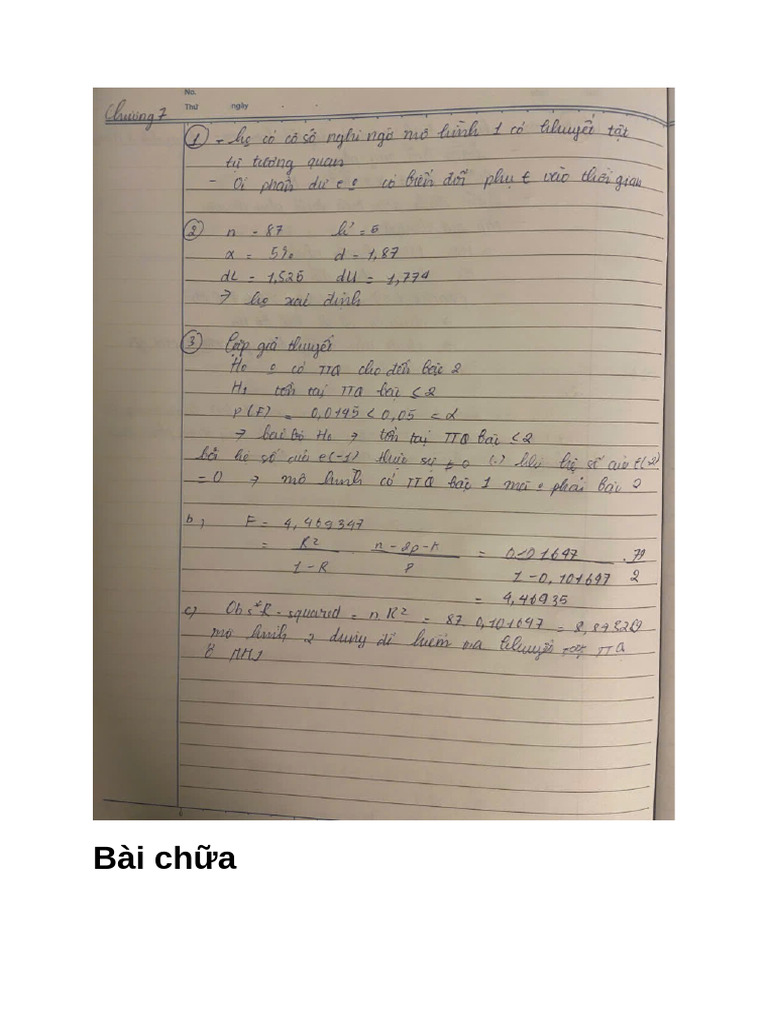 No.
Thứ ngày
Chương 7
① - kọ có cô sở nghi ngờ mô hình 1 có khuyết tật
tự tương quan
- Oi phần dư có biến đổi phụ t vào thời gian
② n = 87 k' = 5
α = 5% d = 1,87
dL = 1,525 dU = 1,774
→ kọ xác định
③ Cặp giả thuyết
Ho có TTQ cho đến bậc 2
H1 tồn tại TTQ bậc ≤ 2
P(F) = 0,0145 < 0,05 = α
→ bác bỏ Ho → tồn tại TTQ bậc ≤ 2
hệ số của e(-1) thực sự ≠ 0 hệ số của e(-2)
= 0 → mô hình có TTQ bậc 1 phải bậc 2
b, F = 4,469347
= R² / 1 - R . n - 2p - k / p = 0,101697 / 1 - 0,101697 . 79 / 2
= 4,46935
c) Obs*R-squared = nR² = 87. 0,101697 =
mô hình 2 dùng để kiểm tra khuyết TTQ
ở MH1
Bài chữa